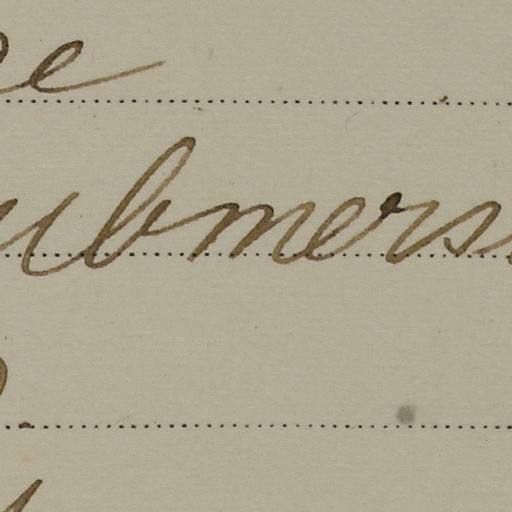 e
ubmers